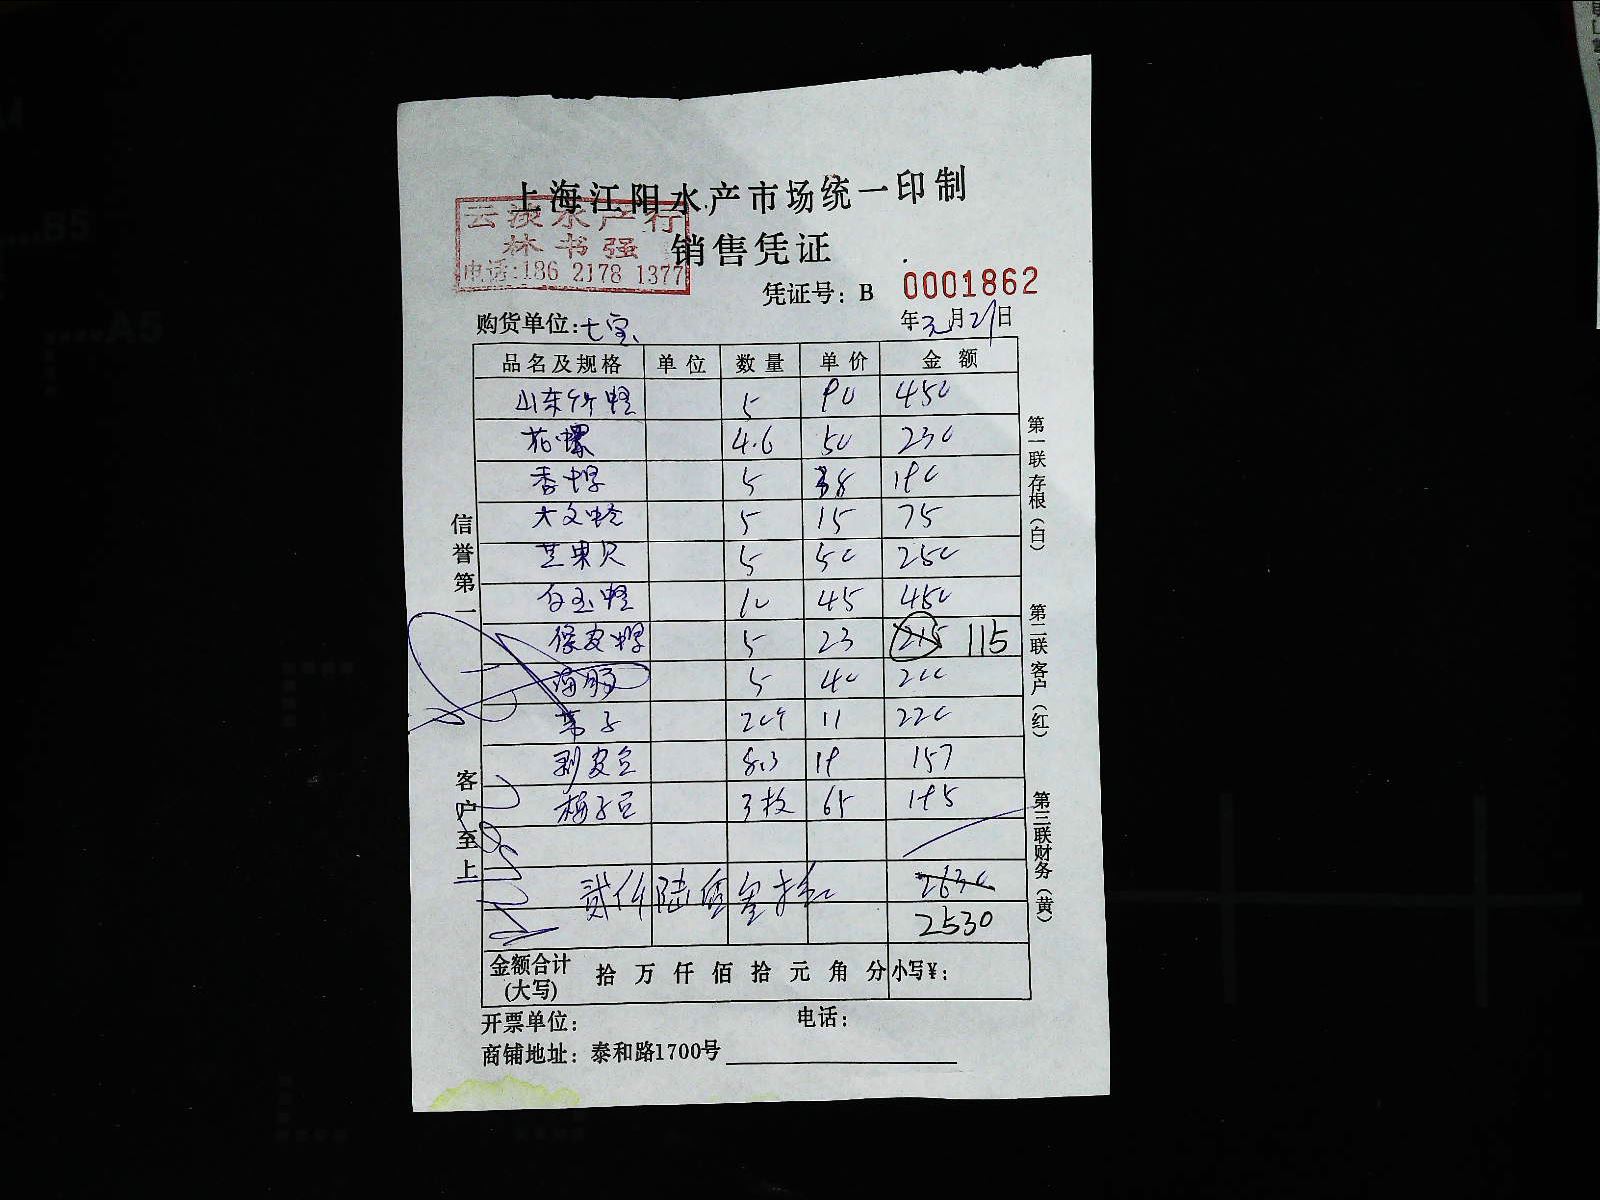 上海江阳水产市场统一印制
云波水产行
林书强
电话:186 2178 1377
销售凭证
凭证号：B 0001862
购货单位:七宝 年3月21日
品名及规格 单位 数量 单价 金额
山东竹蛏 5 90 450
花螺 4.6 50 230
香螺 5 38 190
大文蛤 5 15 75
芒果贝 5 50 250
白玉蛏 10 45 450
5 23 215 115
5 40 200
20个 11 220
剥皮豆 8.3 19 157
梅子豆 3板 65 195
贰仟陆佰叁拾 2630
2530
金额合计 拾 万 仟 佰 拾 元 角 分 小写¥：
(大写)
开票单位： 电话：
商铺地址：泰和路1700号
信誉第一
客户至上
第一联存根(白)
第二联客户(红)
第三联财务(黄)
A5
B5